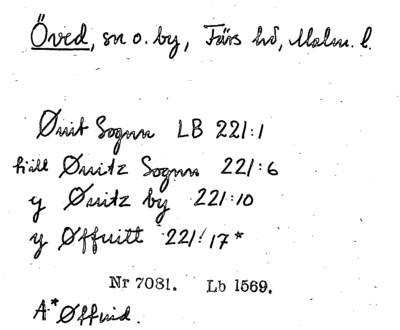 Öved, sn o. by, Färs hd, Malm. l.
Øuit Sognn LB 221:1
till Øuitz Sognn 221:6
y Øuitz by 221:10
y Øffuitt 221:17*
Nr 7081. Lb 1569.
A* Øffuid.